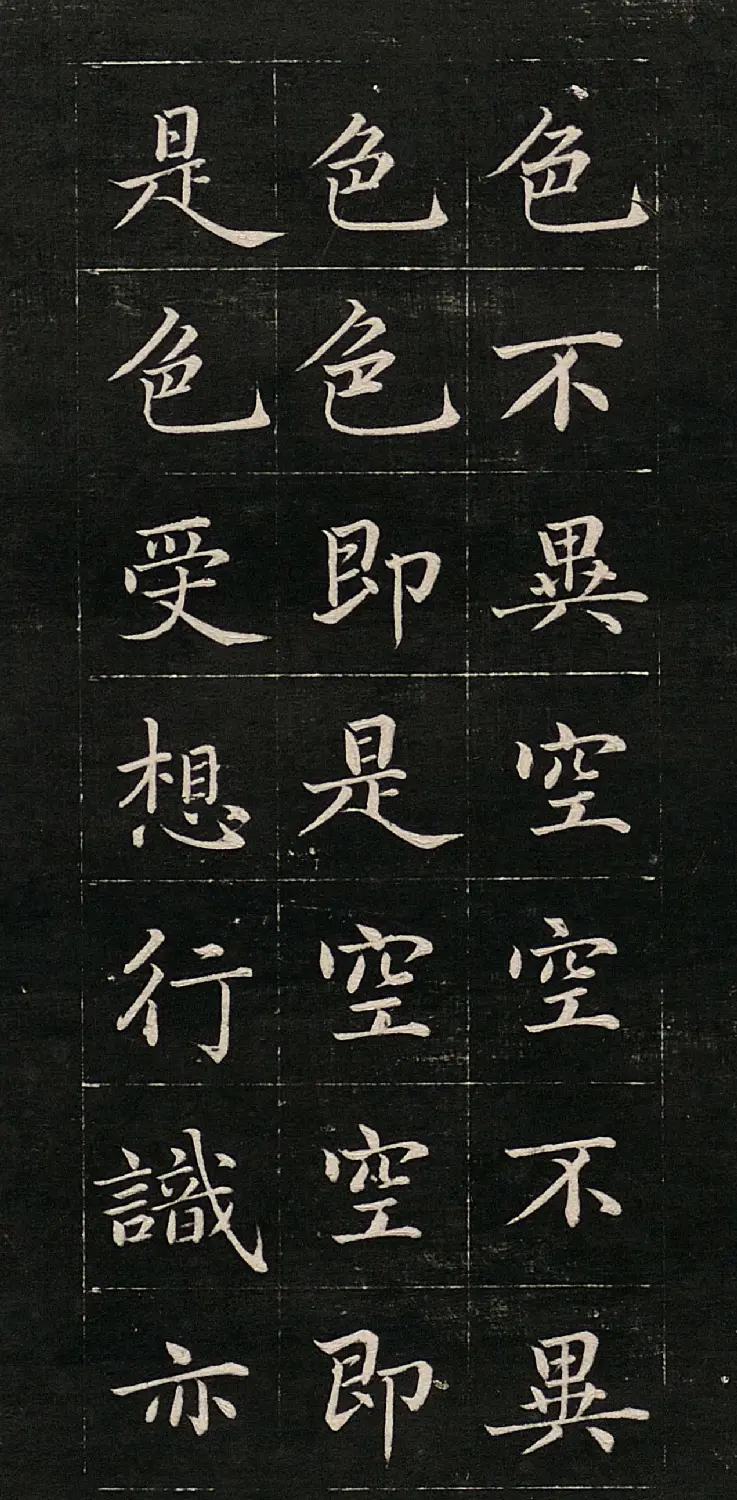 色不異空空不異
色色即是空空即
是色受想行識亦